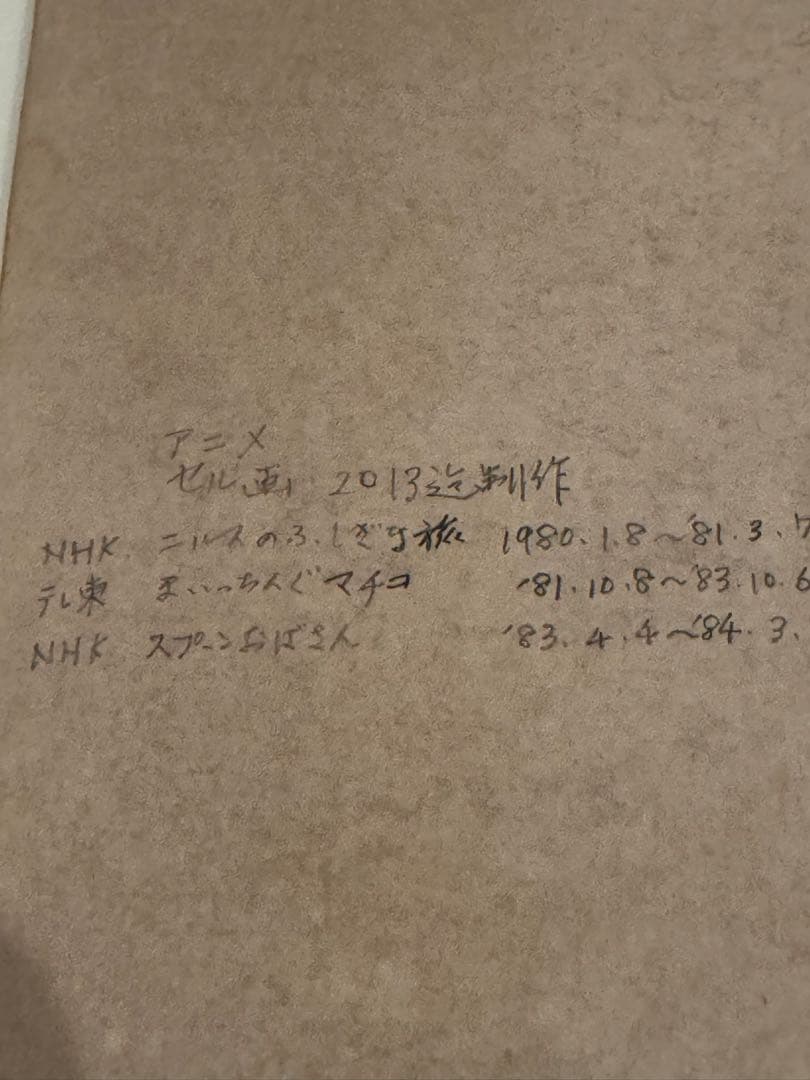 アニメ
セル画 2013迄制作
NHK ニルスのふしぎな旅 1980.1.8〜'81.3.7
テレ東 まいっちんぐマチコ '81.10.8〜'83.10.6
NHK スプーンおばさん '83.4.4〜'84.3.